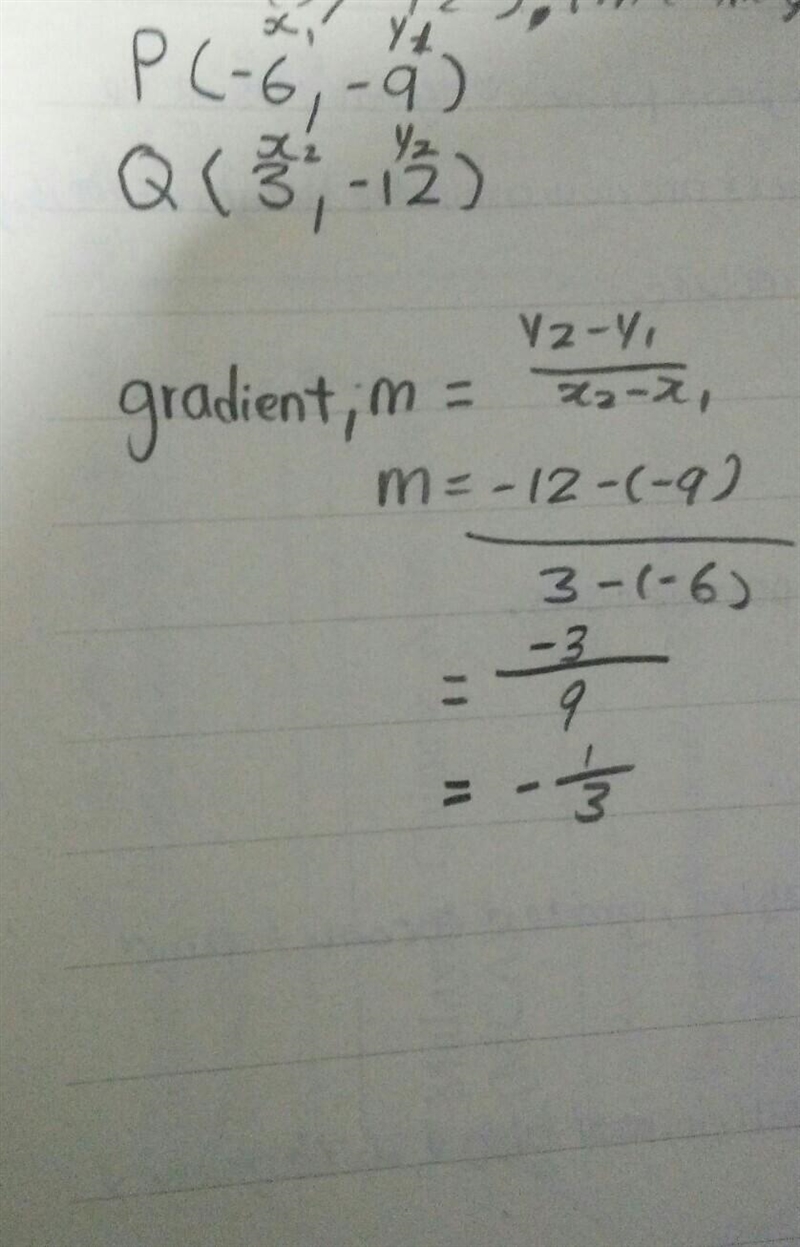 x₁ y₁
P(-6, -9)
x₂ y₂
Q(3, -12)
gradient, m = y₂-y₁ / x₂-x₁
m = -12-(-9) / 3-(-6)
= -3 / 9
= - 1/3